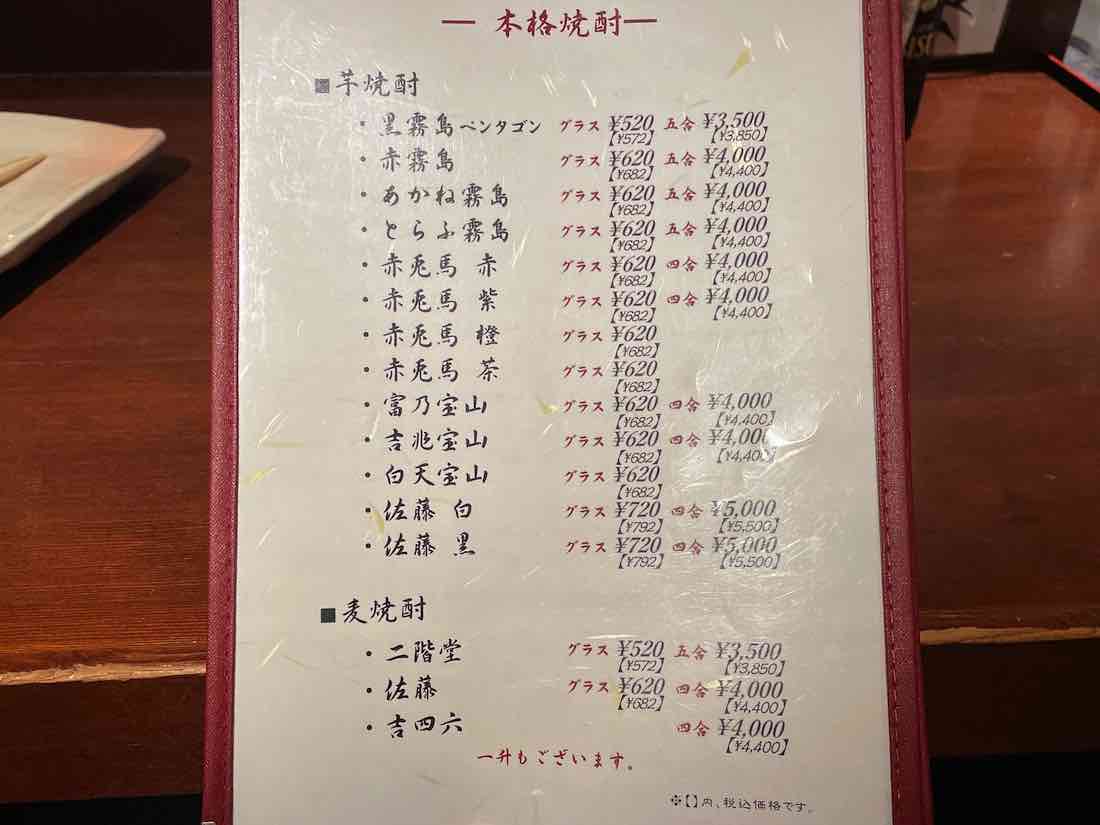 本格焼酎
■芋焼酎
・黒霧島ペンタゴン グラス ¥520 五合 ¥3,500
【¥572】 【¥3,850】
・赤霧島 グラス ¥620 五合 ¥4,000
【¥682】 【¥4,400】
・あかね霧島 グラス ¥620 五合 ¥4,000
【¥682】 【¥4,400】
・とらふ霧島 グラス ¥620 五合 ¥4,000
【¥682】 【¥4,400】
・赤兎馬 赤 グラス ¥620 四合 ¥4,000
【¥682】 【¥4,400】
・赤兎馬 紫 グラス ¥620 四合 ¥4,000
【¥682】 【¥4,400】
・赤兎馬 橙 グラス ¥620
【¥682】
・赤兎馬 茶 グラス ¥620
【¥682】
・富乃宝山 グラス ¥620 四合 ¥4,000
【¥682】 【¥4,400】
・吉兆宝山 グラス ¥620 四合 ¥4,000
【¥682】 【¥4,400】
・白天宝山 グラス ¥620
【¥682】
・佐藤 白 グラス ¥720 四合 ¥5,000
【¥792】 【¥5,500】
・佐藤 黒 グラス ¥720 四合 ¥5,000
【¥792】 【¥5,500】
■麦焼酎
・二階堂 グラス ¥520 五合 ¥3,500
【¥572】 【¥3,850】
・佐藤 グラス ¥620 四合 ¥4,000
【¥682】 【¥4,400】
・吉四六 四合 ¥4,000
【¥4,400】
一升もございます。
※【】内、税込価格です。